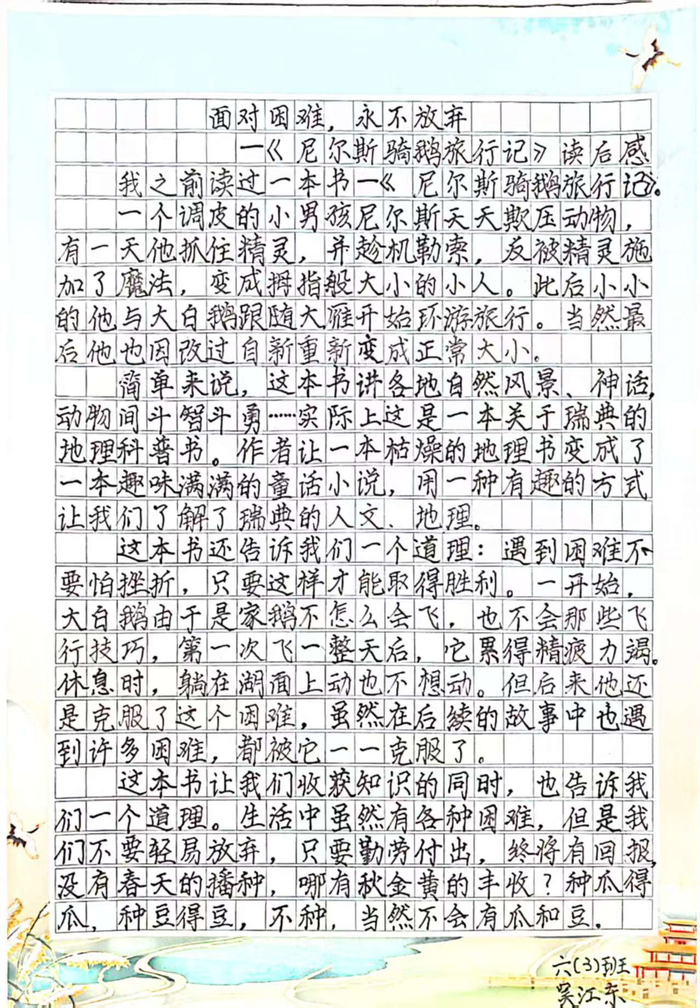 面对困难，永不放弃
—《尼尔斯骑鹅旅行记》读后感
我之前读过一本书—《尼尔斯骑鹅旅行记》。
一个调皮的小男孩尼尔斯天天欺压动物，
有一天他抓住精灵，并趁机勒索，反被精灵施
加了魔法，变成拇指般大小的小人。此后小小
的他与大白鹅跟随大雁开始环游旅行。当然最
后他也因改过自新重新变成正常大小。
简单来说，这本书讲各地自然风景、神话，
动物间斗智斗勇……实际上这是一本关于瑞典的
地理科普书。作者让一本枯燥的地理书变成了
一本趣味满满的童话小说，用一种有趣的方式
让我们了解了瑞典的人文、地理。
这本书还告诉我们一个道理：遇到困难不
要怕挫折，只要这样才能取得胜利。一开始，
大白鹅由于是家鹅不怎么会飞，也不会那些飞
行技巧，第一次飞一整天后，它累得精疲力竭。
休息时，躺在湖面上动也不想动。但后来他还
是克服了这个困难，虽然在后续的故事中也遇
到许多困难，都被它一一克服了。
这本书让我们收获知识的同时，也告诉我
们一个道理。生活中虽然有各种困难，但是我
们不要轻易放弃，只要勤劳付出，终将有回报，
没有春天的播种，哪有秋金黄的丰收？种瓜得
瓜，种豆得豆，不种，当然不会有瓜和豆。
六(3)班
吴江